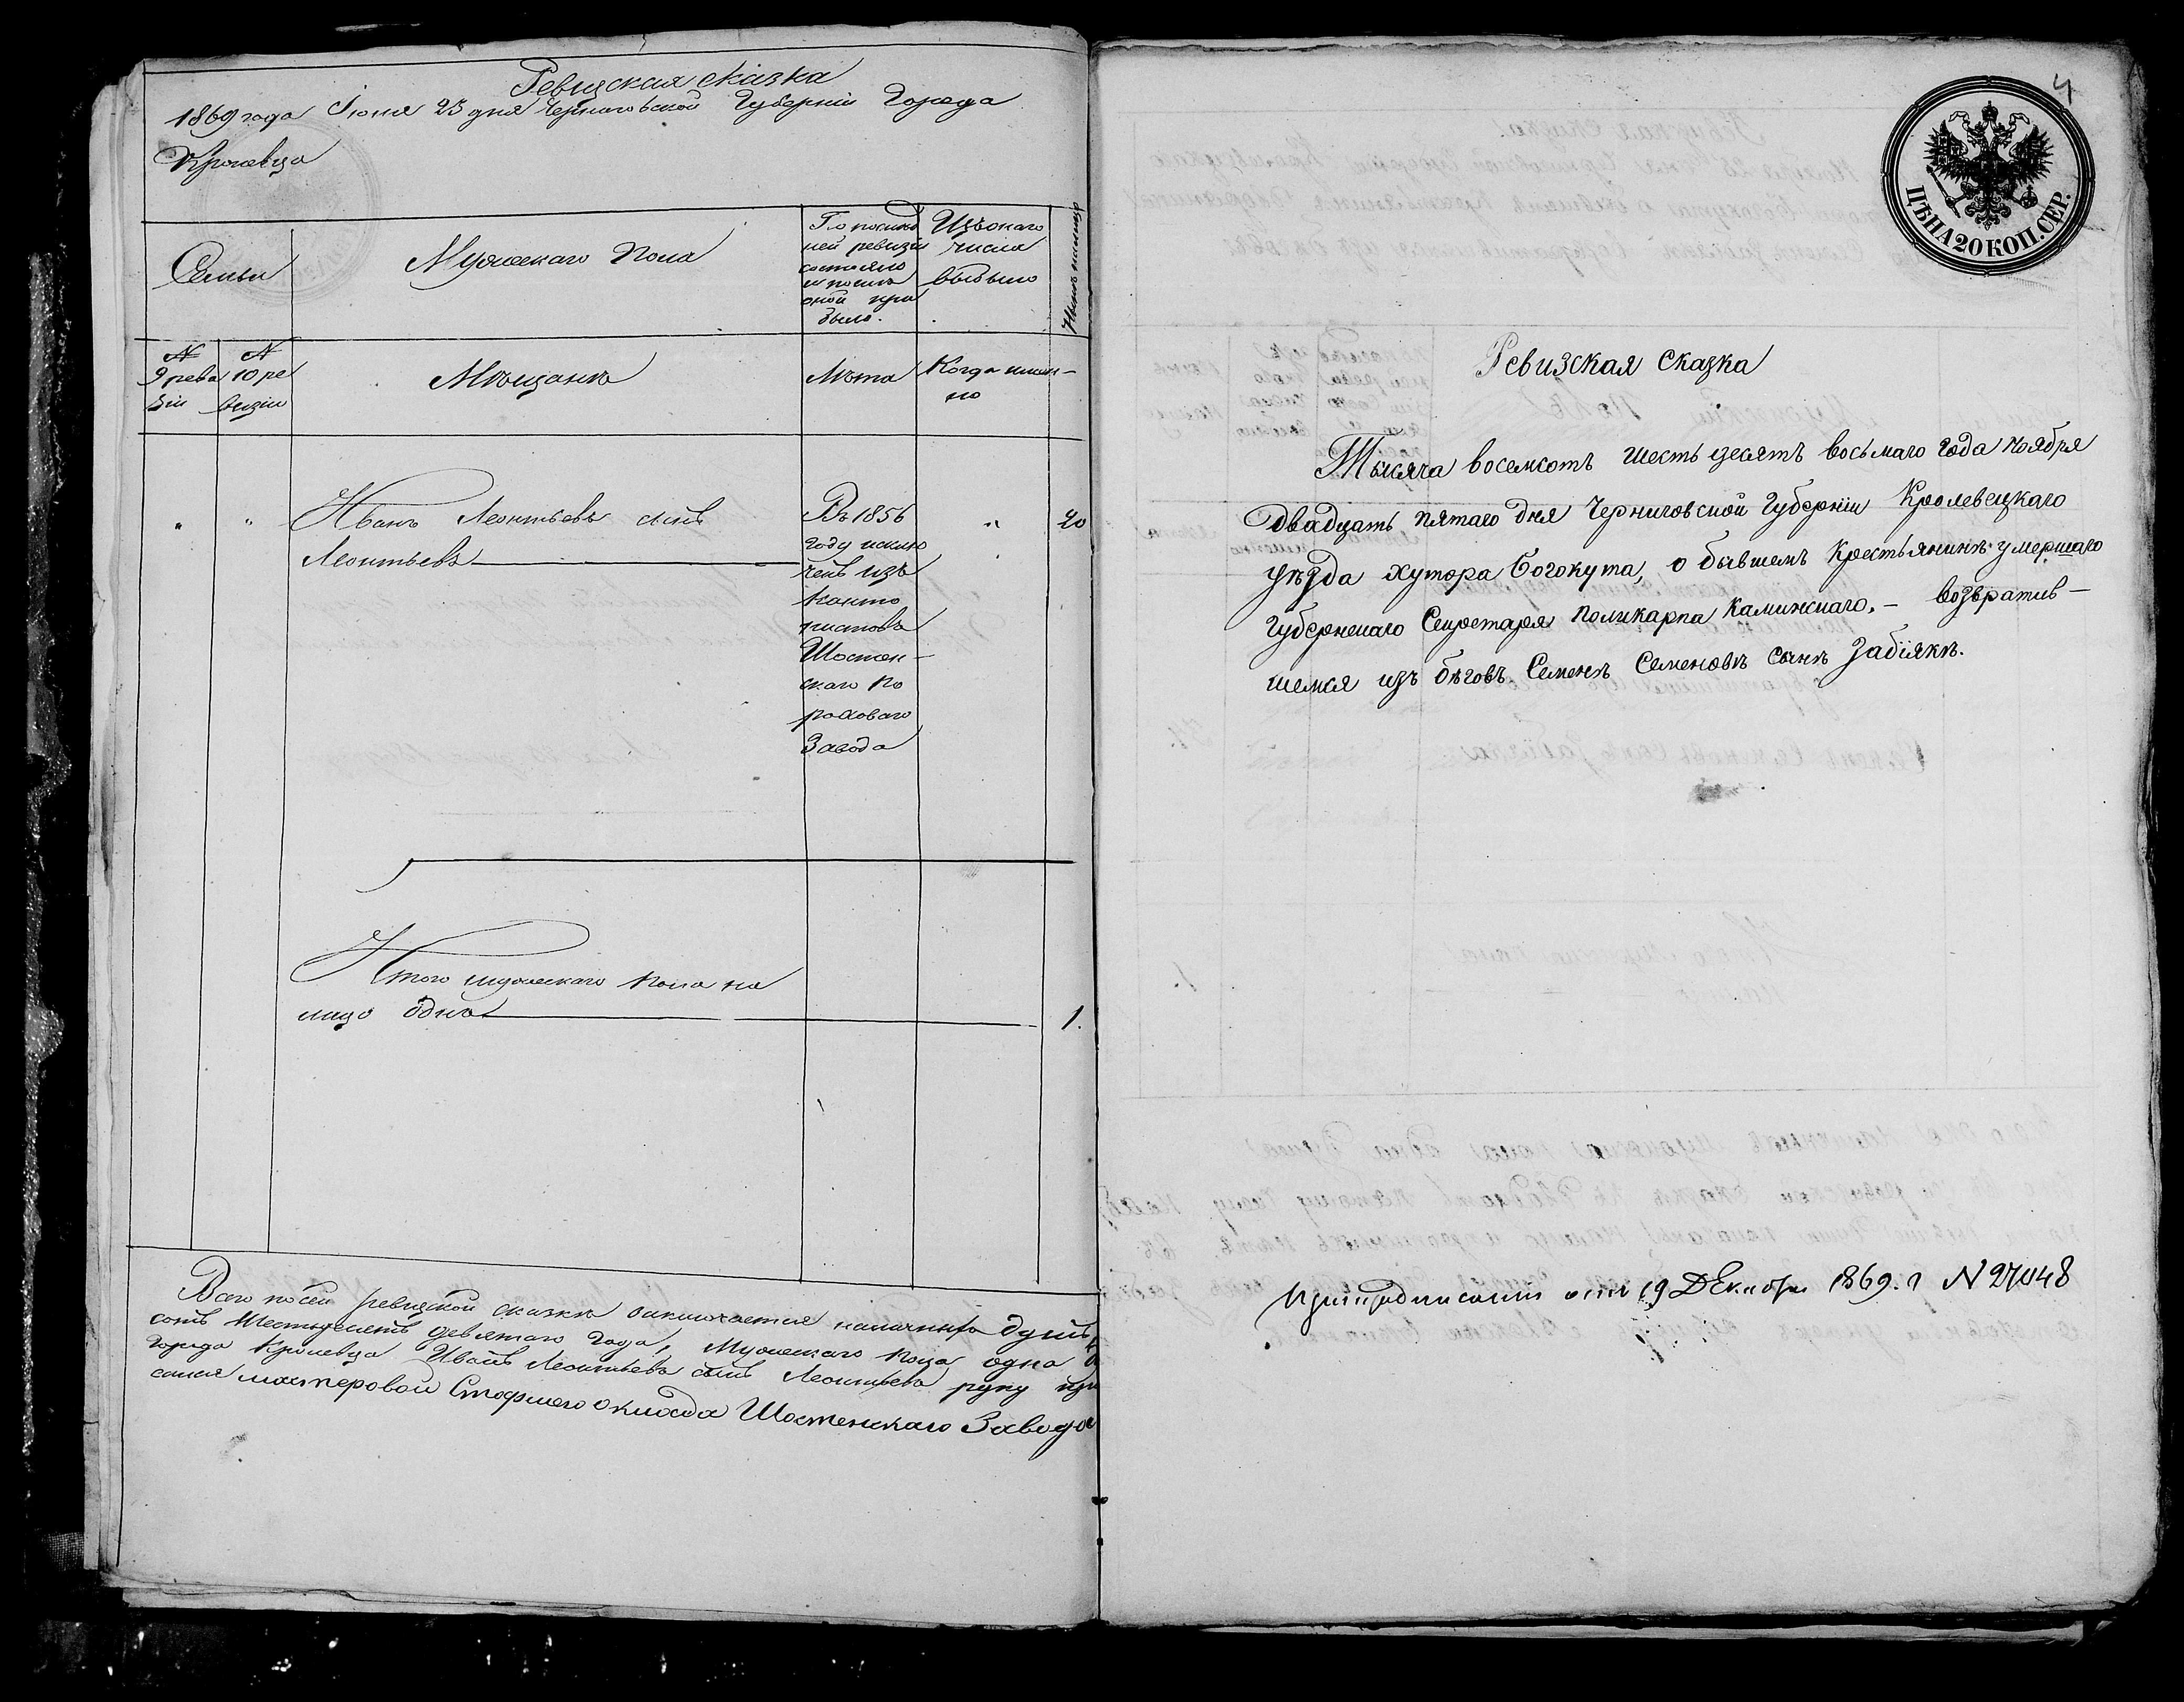 Ревизская сказка
1869 года Іюня 23 дня Черниговской Губерніи Города
Кролевца
Семьи
Мужескаго Пола
По послѣд
ней ревизіи
состояло
и послѣ
оной при
было.
Изъ онаго
числа
выбыло
Нынѣ налицо
№ 9 реви
зіи
№ 10 ре
визіи
Мѣщанъ
Лѣта
Когда имен-
но
" " Иванъ Леонтьевъ сынъ
Леонтьевъ
Въ 1856
году исклю
ченъ изъ
Канто
нистовъ
Шостен-
скаго По
роховаго
Завода
"
20
Итого мужескаго пола на
лицо одна 1.
Всего по сей ревизской сказкѣ заключается наличныхъ душъ,
сотъ Шестьдесятъ девятаго Года, Мужескаго пола одна
Города Кролевца Иванъ Леонтьевъ сынъ Леонтьевъ руку при
мастеровой Стафнаго оклада Шостенскаго Завода
4
ЦѢНА 20 КОП. СЕР.
Ревизская Сказка
Тысяча восемсотъ шесть десятъ восьмаго года ноября
двадцать пятаго дня Черниговской Губерніи Кролевецкаго
уѣзда хутора Богокута, о бывшемъ Крестьянинѣ умершаго
Губернскаго Секретаря Поликарпа Калинскаго, - возвратив-
шемся изъ бѣговъ Семенѣ Семеновѣ сынѣ Забіякѣ.
При предписаніи отъ 19 Декабря 1869. г № 27048